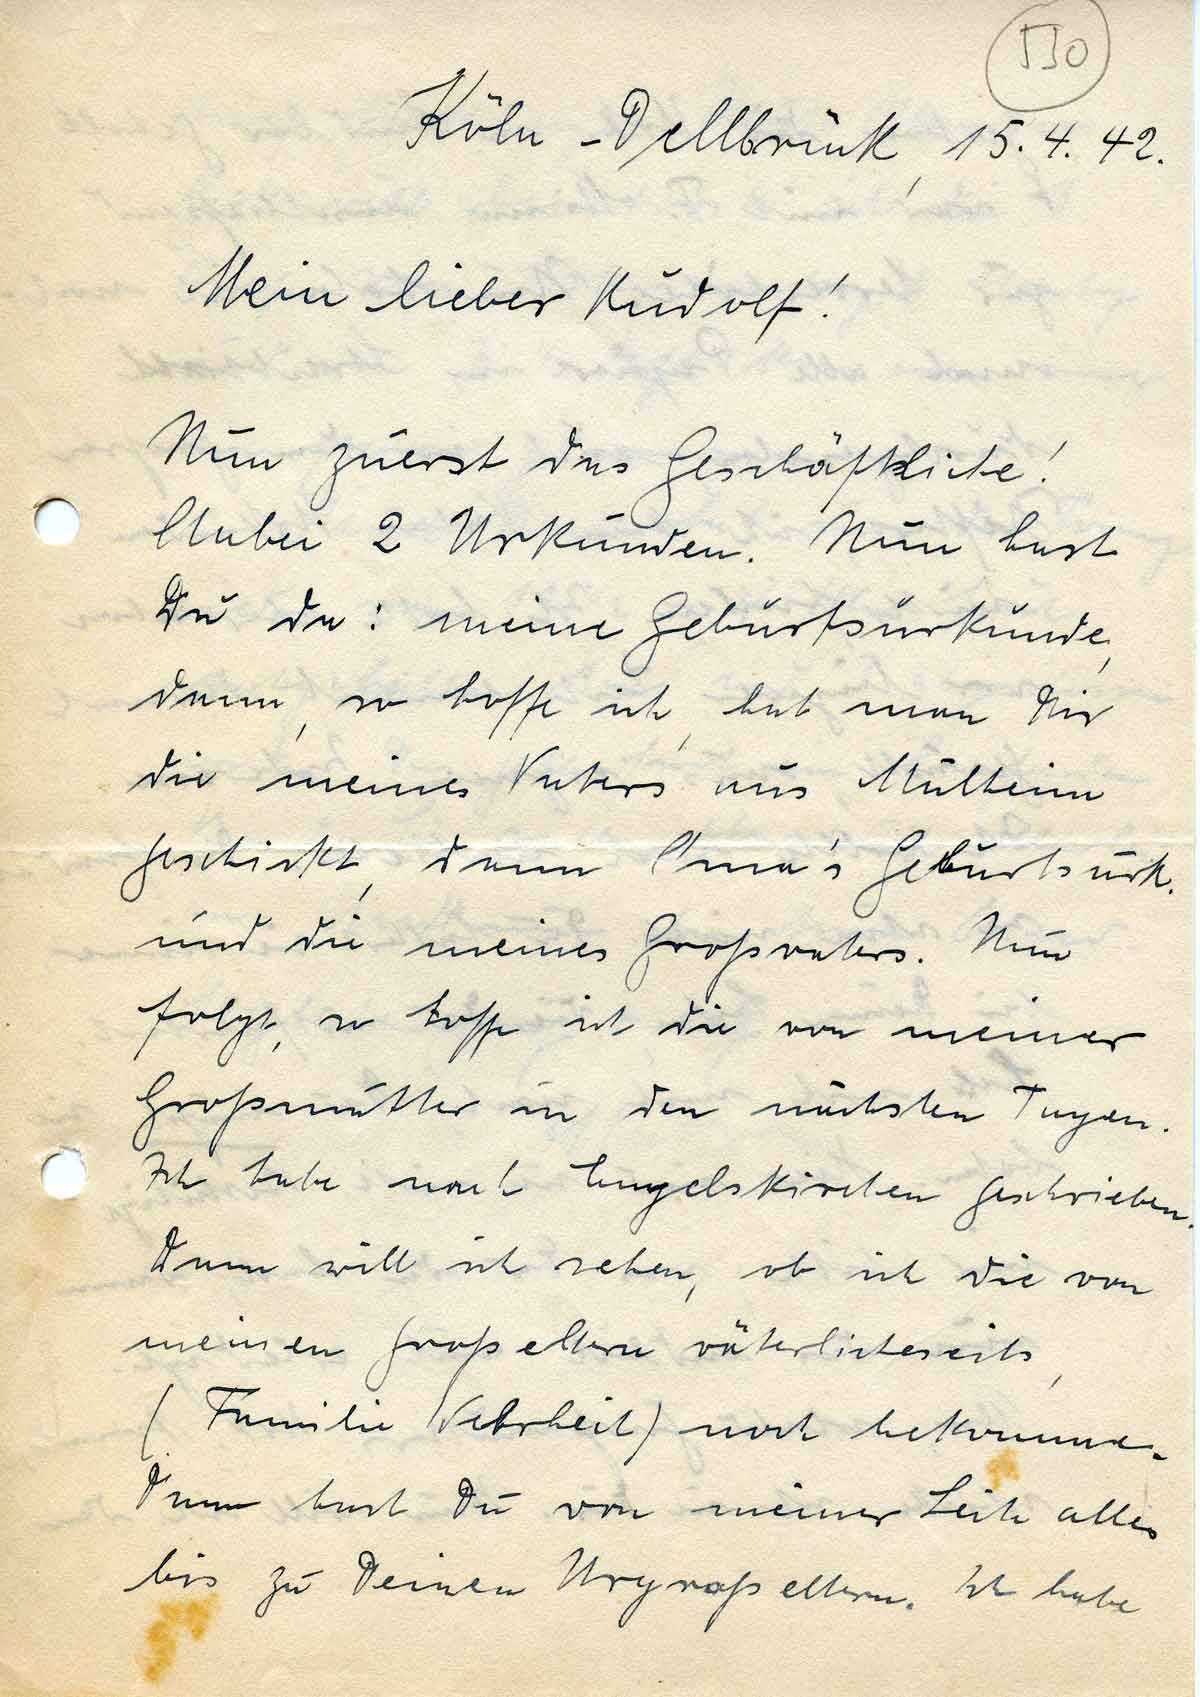 530
Köln-Dellbrück, 15.4.42.
Mein lieber Rudolf!
Nun zuerst das Geschäftliche!
Anbei 2 Urkunden. Nun hast
Du da: meine Geburtsurkunde,
dann, so hoffe ich, hat man Dir
die meines Vaters aus Mülheim
geschickt, dann Oma's Geburtsurk.
und die meines Großvaters. Nun
folgt, so hoffe ich die von meiner
Großmutter in den nächsten Tagen.
Ich habe nach Engelskirchen geschrieben.
Dann will ich sehen, ob ich die von
meinen Großeltern väterlicheseits,
(Familie) noch bekomme.
Dann hast Du von meiner Seite alles
bis zu Deinen Urgroßeltern. Ich habe